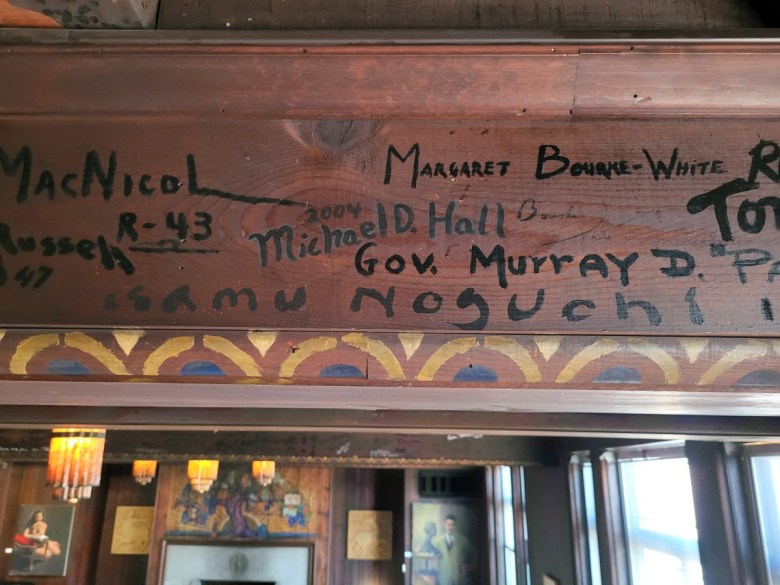 MACNICOL MARGARET BOURKE-WHITE
2004
Russell R-43 Michael D. Hall
47 GOV. MURRAY D.
ISAMU NOGUCHI